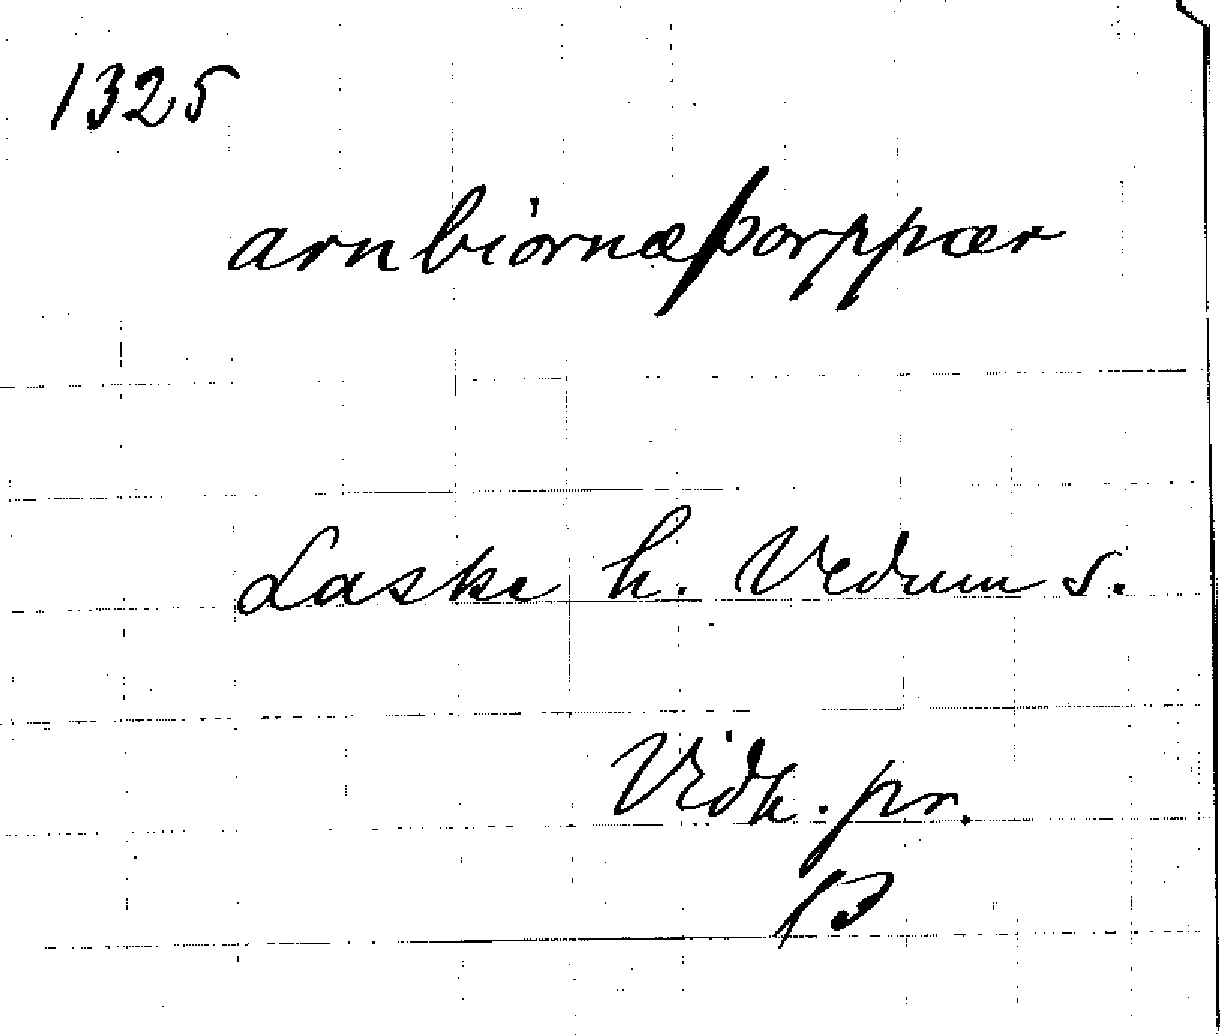 1325
arnbiornæþorppær
Laske h. Vedum s.
Vidh. pr.
13